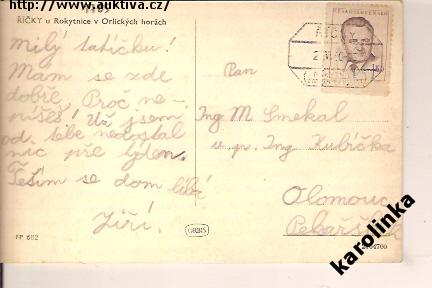 http://www.auktiva.cz/
ŘÍČKY u Rokytnice v Orlických horách
milý tatíčku!
Mám se zde
dobře. Proč ne-
píšeš! Už jsem
od tebe nedostal
nic přes týden.
Těším se dom
Jiří!
FP 662
Pan
Ing M. Smekal
u. p. Ing Kubíčka
Olomouc
ŘÍČKY
ČESKOSLOVENSKO
karolinka